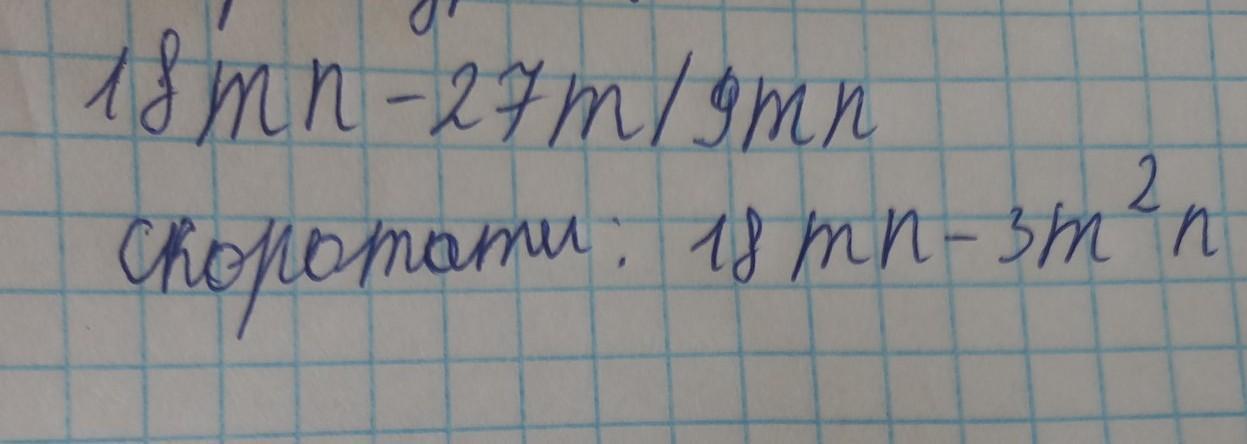 18mn-27m/9mn
скоротати: 18mn-3m²n